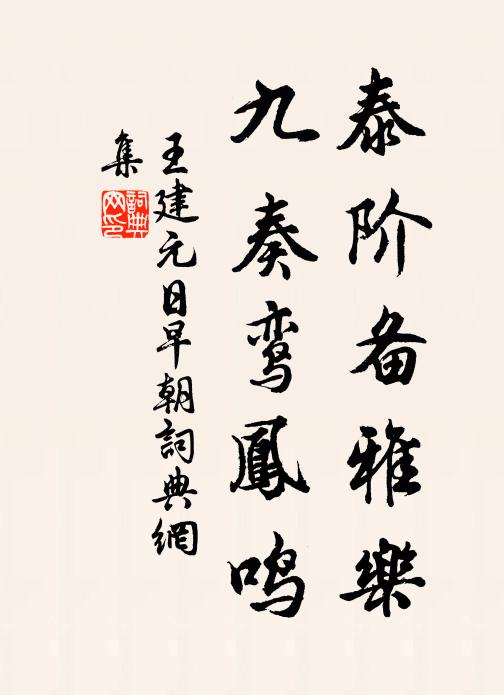 泰阶备雅樂
九奏鸾鳳鸣
王建元日早朝詞典網
集
詞典
网印